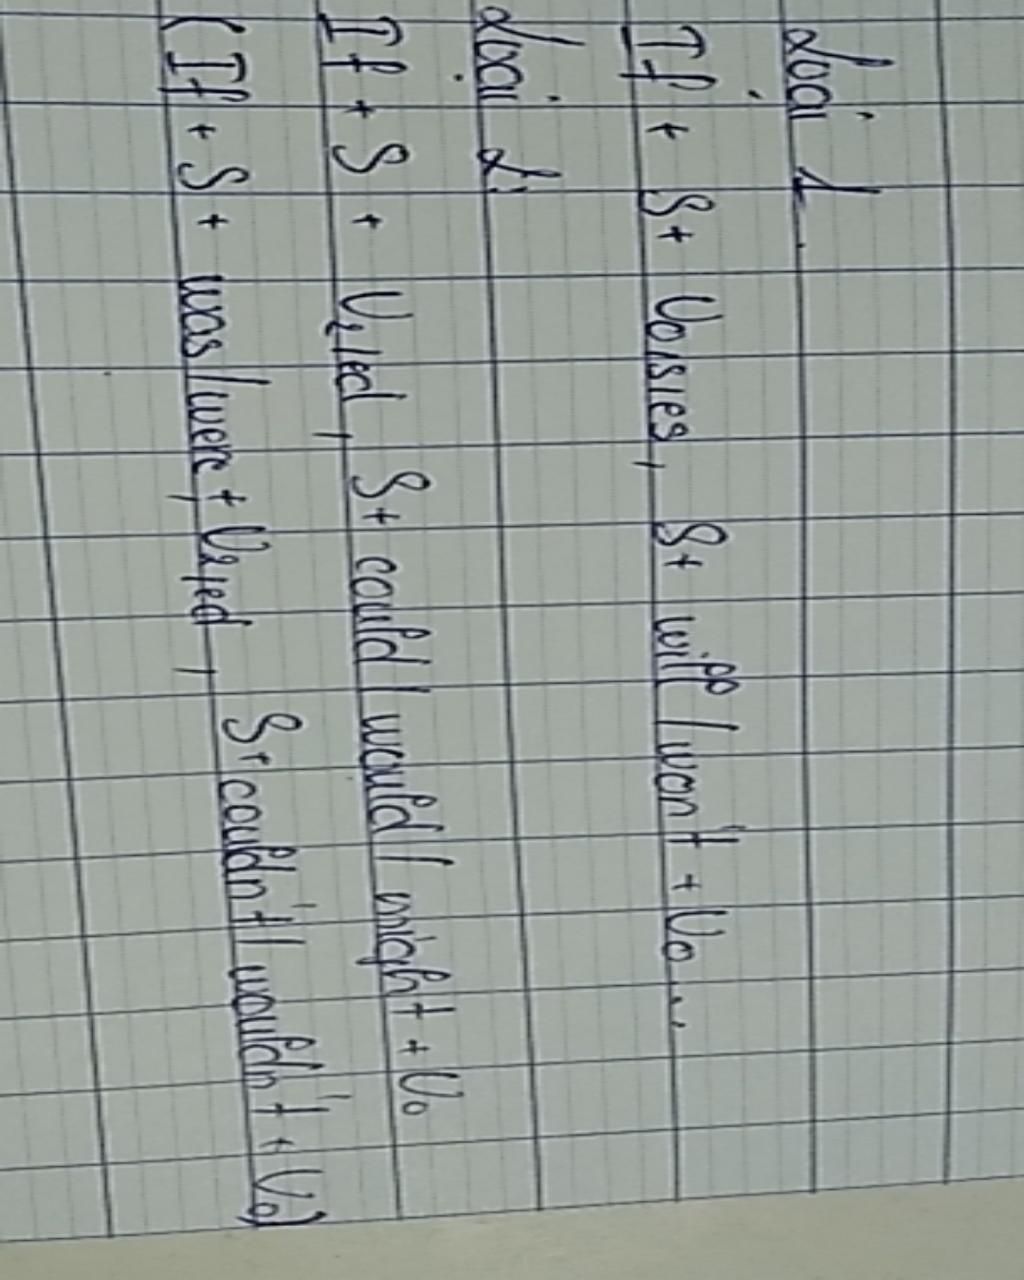 Loại 1.
If + S + V0/s/es, S + will / won't + V0...
Loại 2:
If + S + V2/ed, S + could / would / might + V0
(If + S + was/were, + V2/ed, S + couldn't / wouldn't + V0)